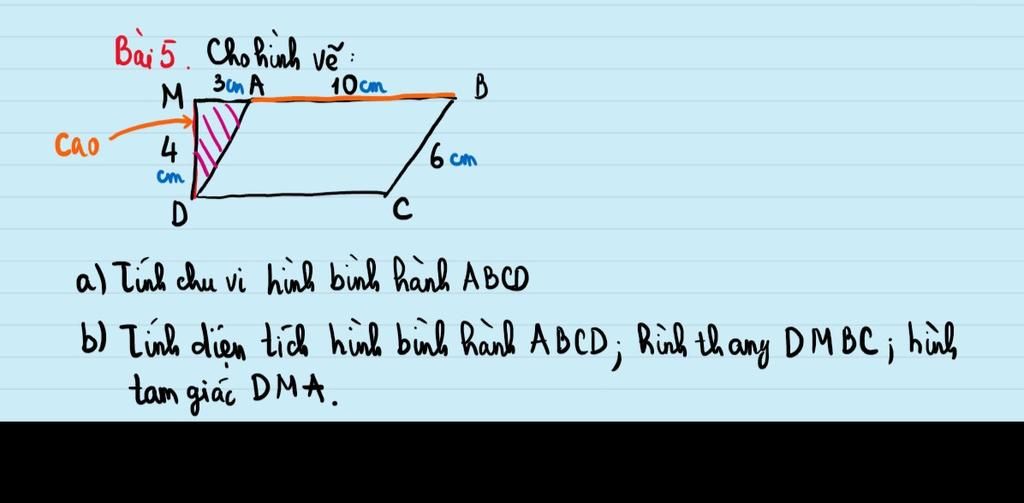 Bài 5. Cho hình vẽ:
M 3cm A 10cm B
Cao
4 cm
6 cm
D
C
a) Tính chu vi hình bình hành ABCD
b) Tính diện tích hình bình hành ABCD; hình thang DMBC; hình
tam giác DMA.